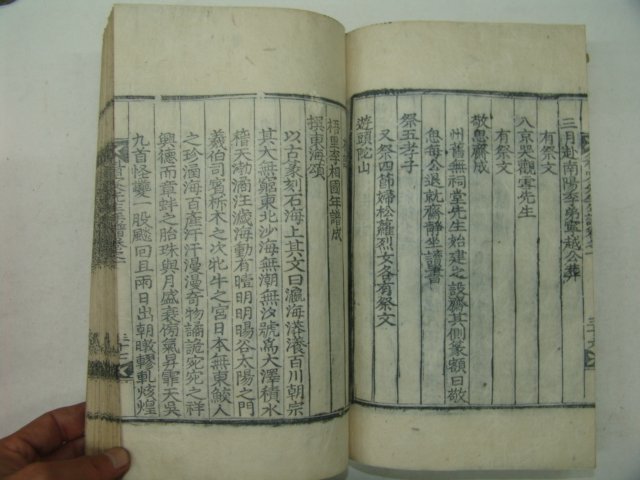 三月赴南陽季弟寧越公葬
有祭文
入京哭觀雪先生
有祭文
敬思齋成
州舊無祠堂先生始建之設齋其側篆額曰敬
思每公退就齋靜坐讀書
祭五孝子
又祭四節婦松蘿烈女各有祭文
遊頭陀山
梧里李相國年譜成
撰東海頌
以古篆刻石海上其文曰瀛海漭瀁百川朝宗
其大無窮東北沙海無潮無汐號爲大澤積水
稽天渤潏汪濊海動有曀明明暘谷太陽之門
羲伯司賓析木之次牝牛之宮日本無東鮫人
之珍涵海百產汗汗漫漫奇物譎詭宛宛之祥
興德而章蚌之胎珠與月盛衰傍氣昇霏天吳
九首怪夔一股颷回且雨日出朝暾轇軋炫煌